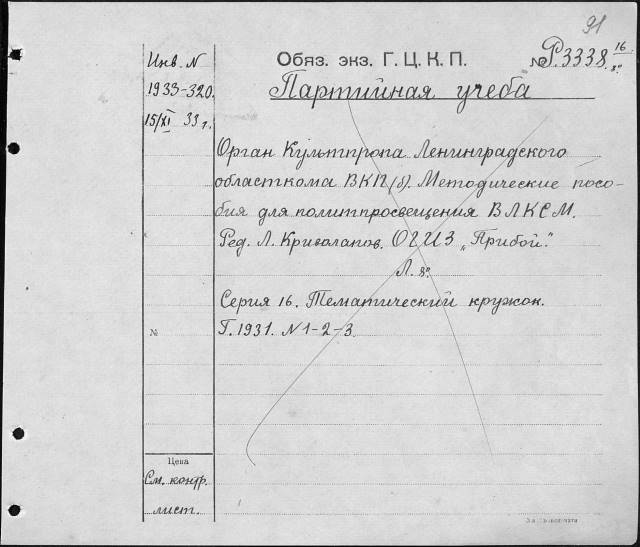 91
Инв. N
1933-320.
15/XI 33 г.
Обяз. экз. Г. Ц. К. П.
№ Р.3338. 16/8°.
Партийная учеба
Орган Культпропа Ленинградского
областкома ВКП/б). Методические посо-
бия для политпросвещения ВЛКСМ.
Ред. Л. Криволапов. ОГИЗ „Прибой".
Л. 8°.
Серия 16. Тематический кружок.
№
Г. 1931. N 1-2-3.
Цена
См. контр.
лист.